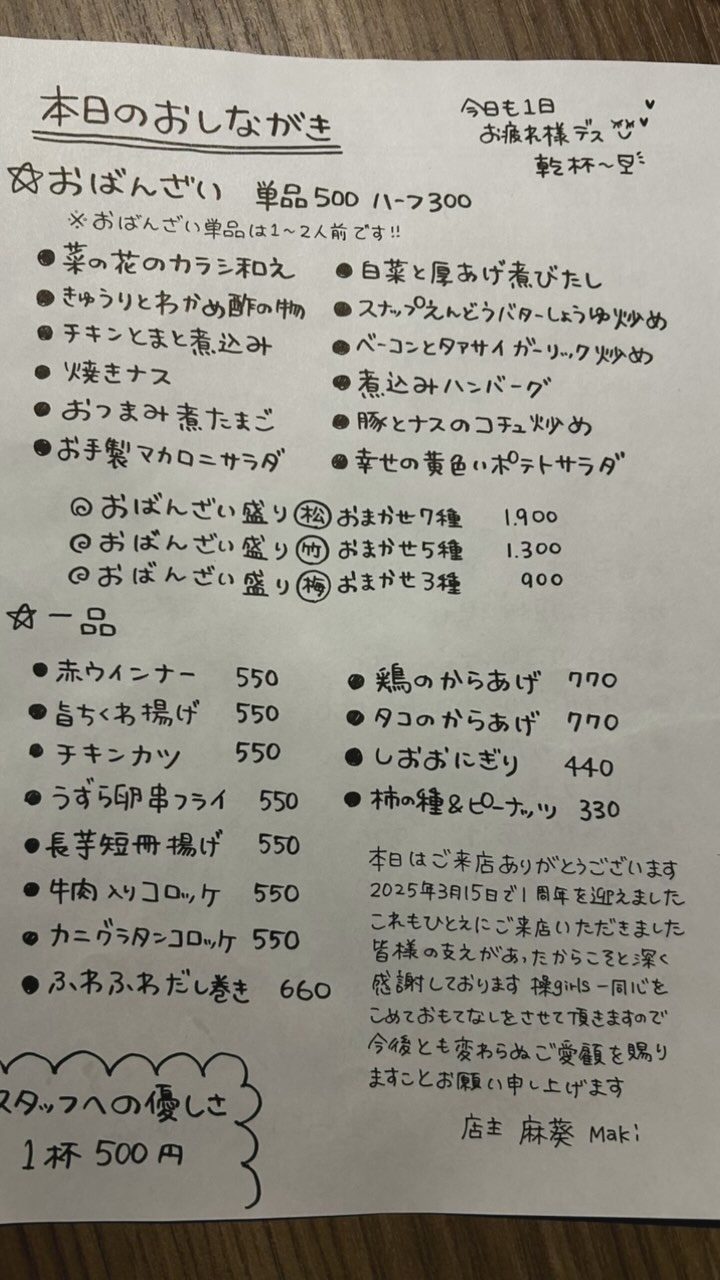 本日のおしながき
今日も1日
お疲れ様デス
乾杯〜
☆おばんざい 単品500 ハーフ300
※おばんざい単品は1〜2人前です!!
●菜の花のカラシ和え
●きゅうりとわかめ酢の物
●チキンとまと煮込み
●焼きナス
●おつまみ煮たまご
●お手製マカロニサラダ
●白菜と厚あげ煮びたし
●スナップえんどうバターしょうゆ炒め
●ベーコンとタアサイガーリック炒め
●煮込みハンバーグ
●豚とナスのコチュ炒め
●幸せの黄色いポテトサラダ
◎おばんざい盛り㊗松 おまかせ7種 1.900
◎おばんざい盛り竹 おまかせ5種 1.300
◎おばんざい盛り梅 おまかせ3種 900
☆一品
●赤ウインナー 550
●旨ちくわ揚げ 550
●チキンカツ 550
●うずら卵串フライ 550
●長芋短冊揚げ 550
●牛肉入りコロッケ 550
●カニグラタンコロッケ 550
●ふわふわだし巻き 660
●鶏のからあげ 770
●タコのからあげ 770
●しおおにぎり 440
●柿の種&ピーナッツ 330
本日はご来店ありがとうございます
2025年3月15日で1周年を迎えました
これもひとえにご来店いただきました
皆様の支えがあったからこそと深く
感謝しております 操girls一同心を
こめておもてなしをさせて頂きますので
今後とも変わらぬご愛顧を賜り
ますことお願い申し上げます
店主 麻葵 Maki
スタッフへの優しさ
1杯 500円